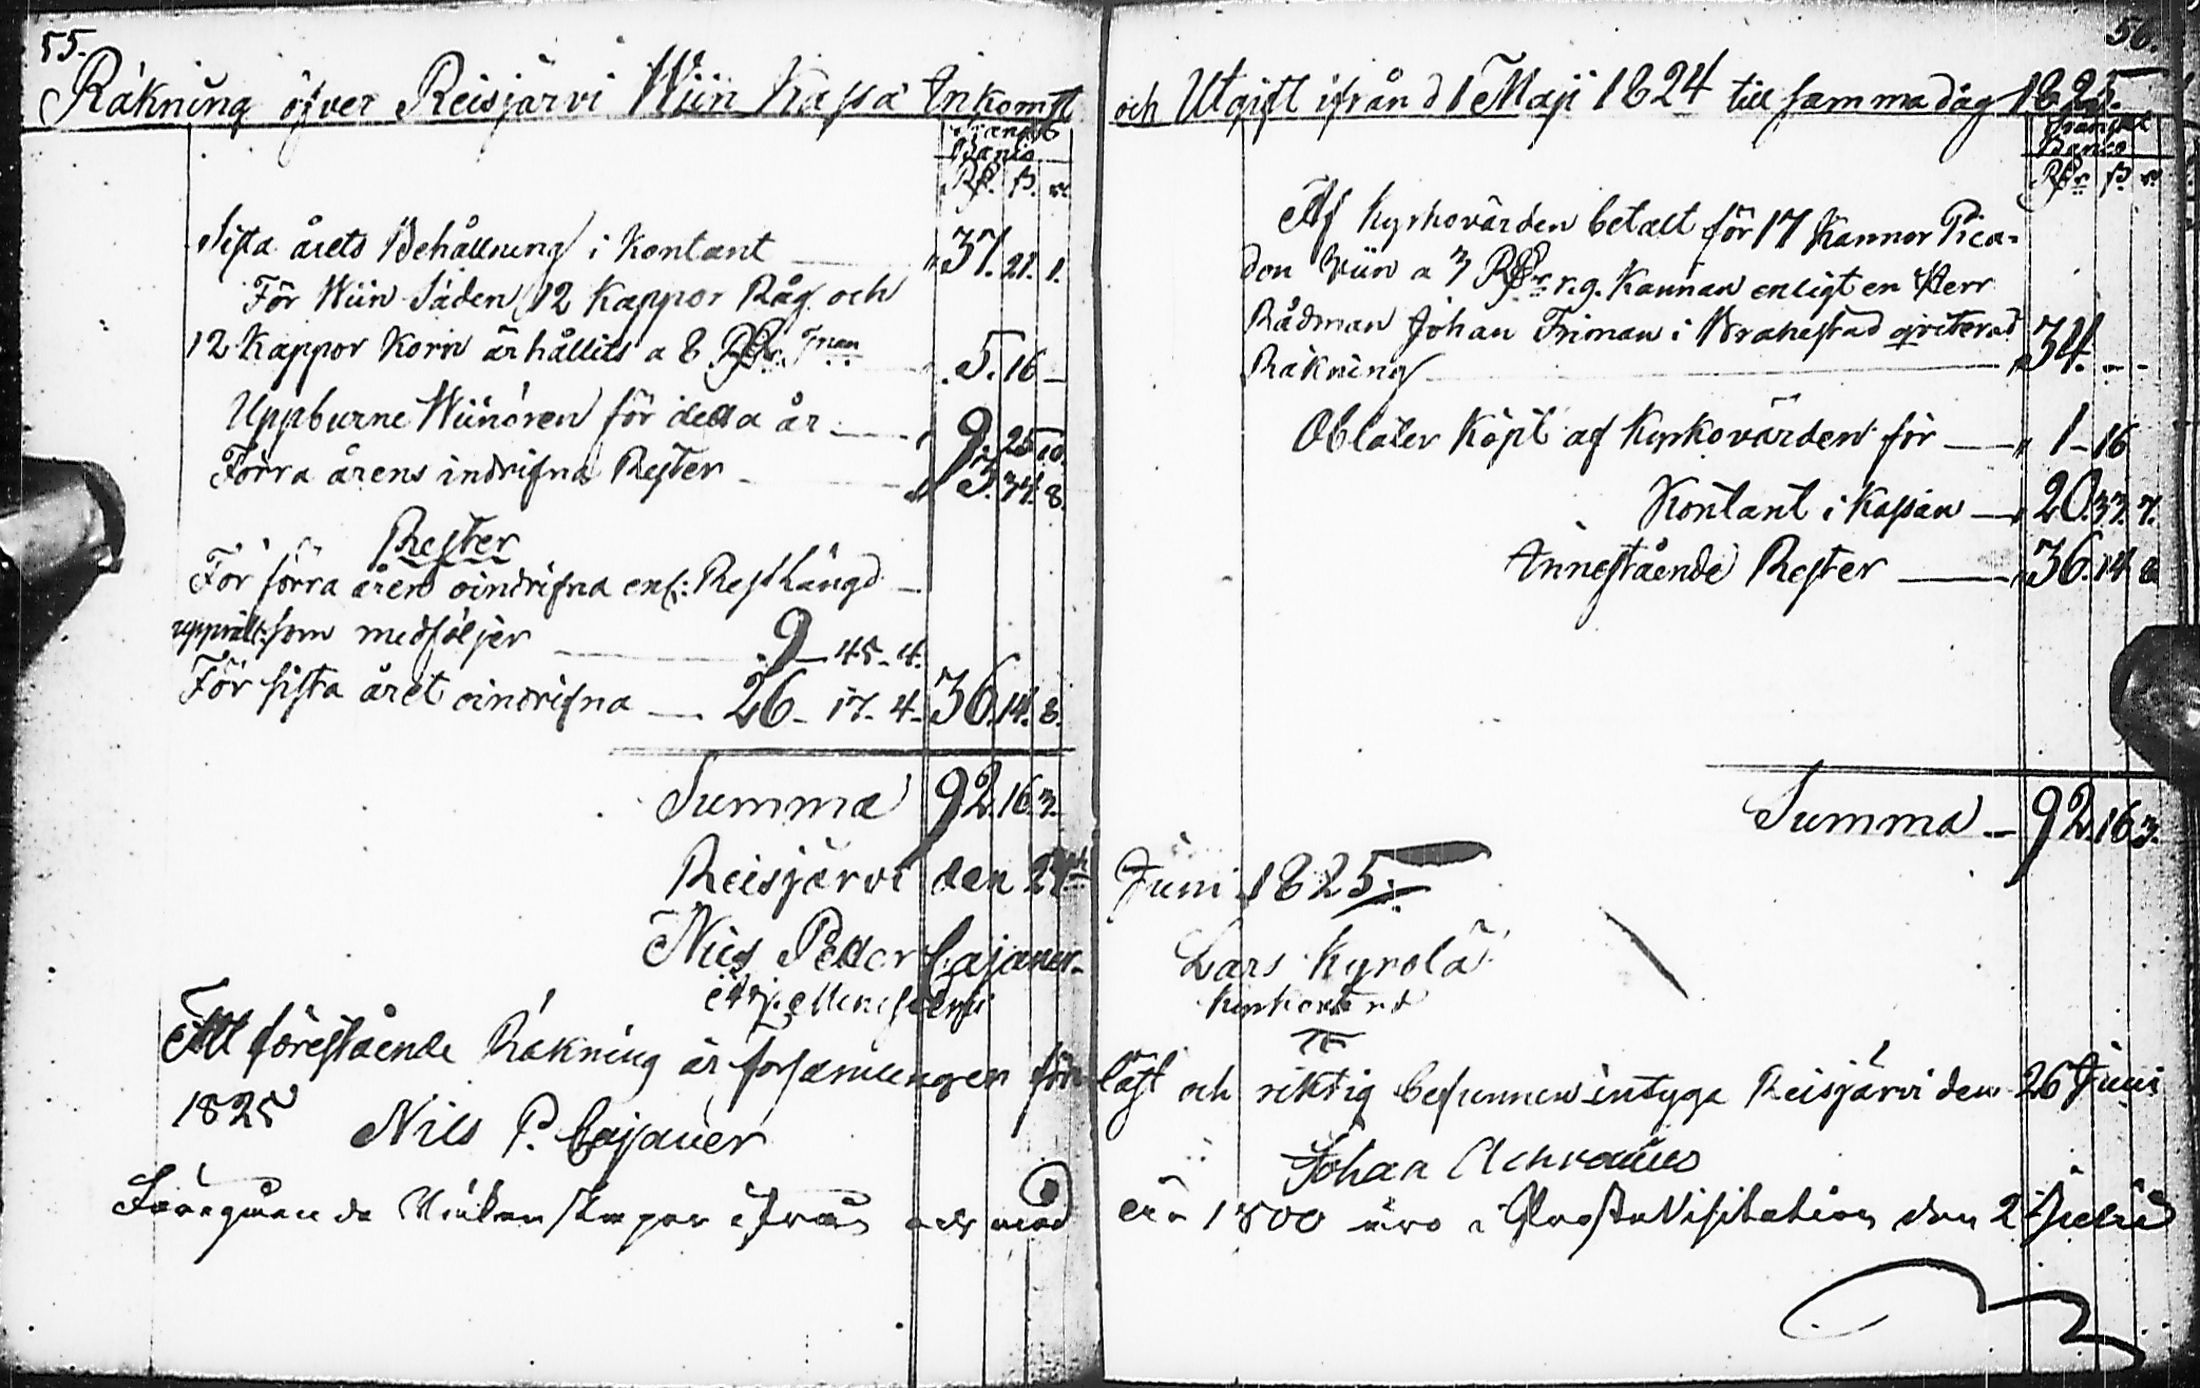 55.
Räkning öfver Reisjärvi Wiin Kassa Inkomst
Banco
Rd. s. r.
Sista årets Behållning i Kontant 37. 21. 1.
För Wiin Säden, 12 Kappor Råg och
12 Kappor Korn ärhållits a 8 Rdr. Tnan 5. 16 –
Uppburne Wiinören för detta år 9. 25. 10.
Förra årens indrifna Rester 3. 34. 8.
Rester
För förra åren oindrifna enl: Rest Längd
upprätt: som medföljer 9 – 45 – 4.
För sista året oindrifna 26 – 17 – 4 – 36. 14. 8.
Summa 92. 16. 3.
Reisjärvi den 24
Nils Petter Cajaner
Att förestående Räkning är församlingen före
1825
Nils P. Cajaner
Föregående Räkenskaper ifrån och med
56.
och Utgift ifrån d 1 Maji 1824 till samma dag 1825.
Banco
Rdr s. r.
Af Kyrkovärden betalt för 17 Kannor Pica-
don Wiin a 3 Rdr r.g. Kannan enligt en Herr
Rådman Johan Friman i Brahestad qviterad
Räkning 34. – –
Oblater Köpt af Kyrkovärden för 1 – 16
Kontant i Kassan 20. 33. 7.
Innestående Rester 36. 14 8
Summa – 92. 16 3.
Juni 1825.
Lars Kyrolä
Kyrkovärd
läst och riktig befunnen intyga Reisjärvi den 26 Juni
Johan
1800 äro i ProsteVisitation den 2 Julii